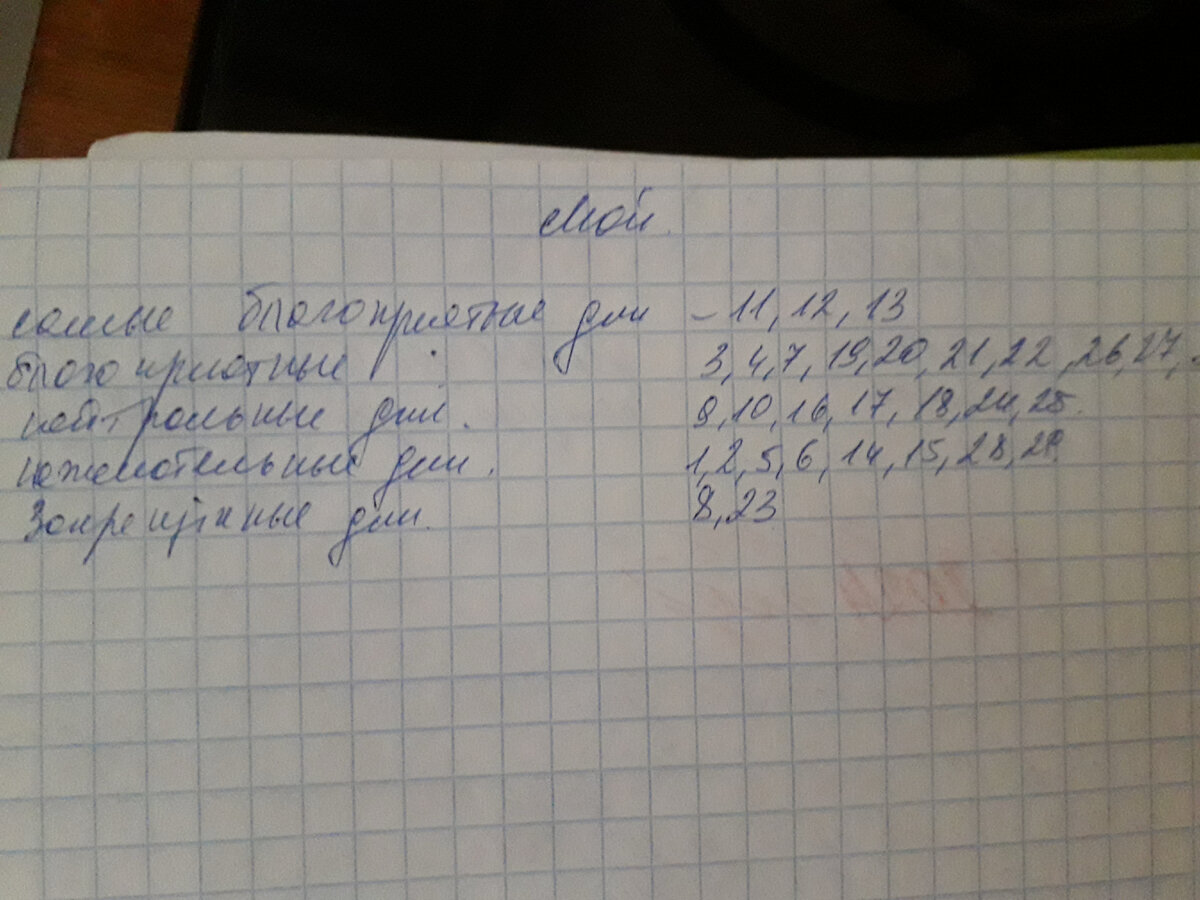 Май.
самые благоприятные дни – 11, 12, 13
благоприятные 3, 4, 7, 19, 20, 21, 22, 26, 27,
нейтральные дни. 9, 10, 16, 17, 18, 24, 25.
нежелательные дни. 1, 2, 5, 6, 14, 15, 28, 29.
Запрещенные дни. 8, 23